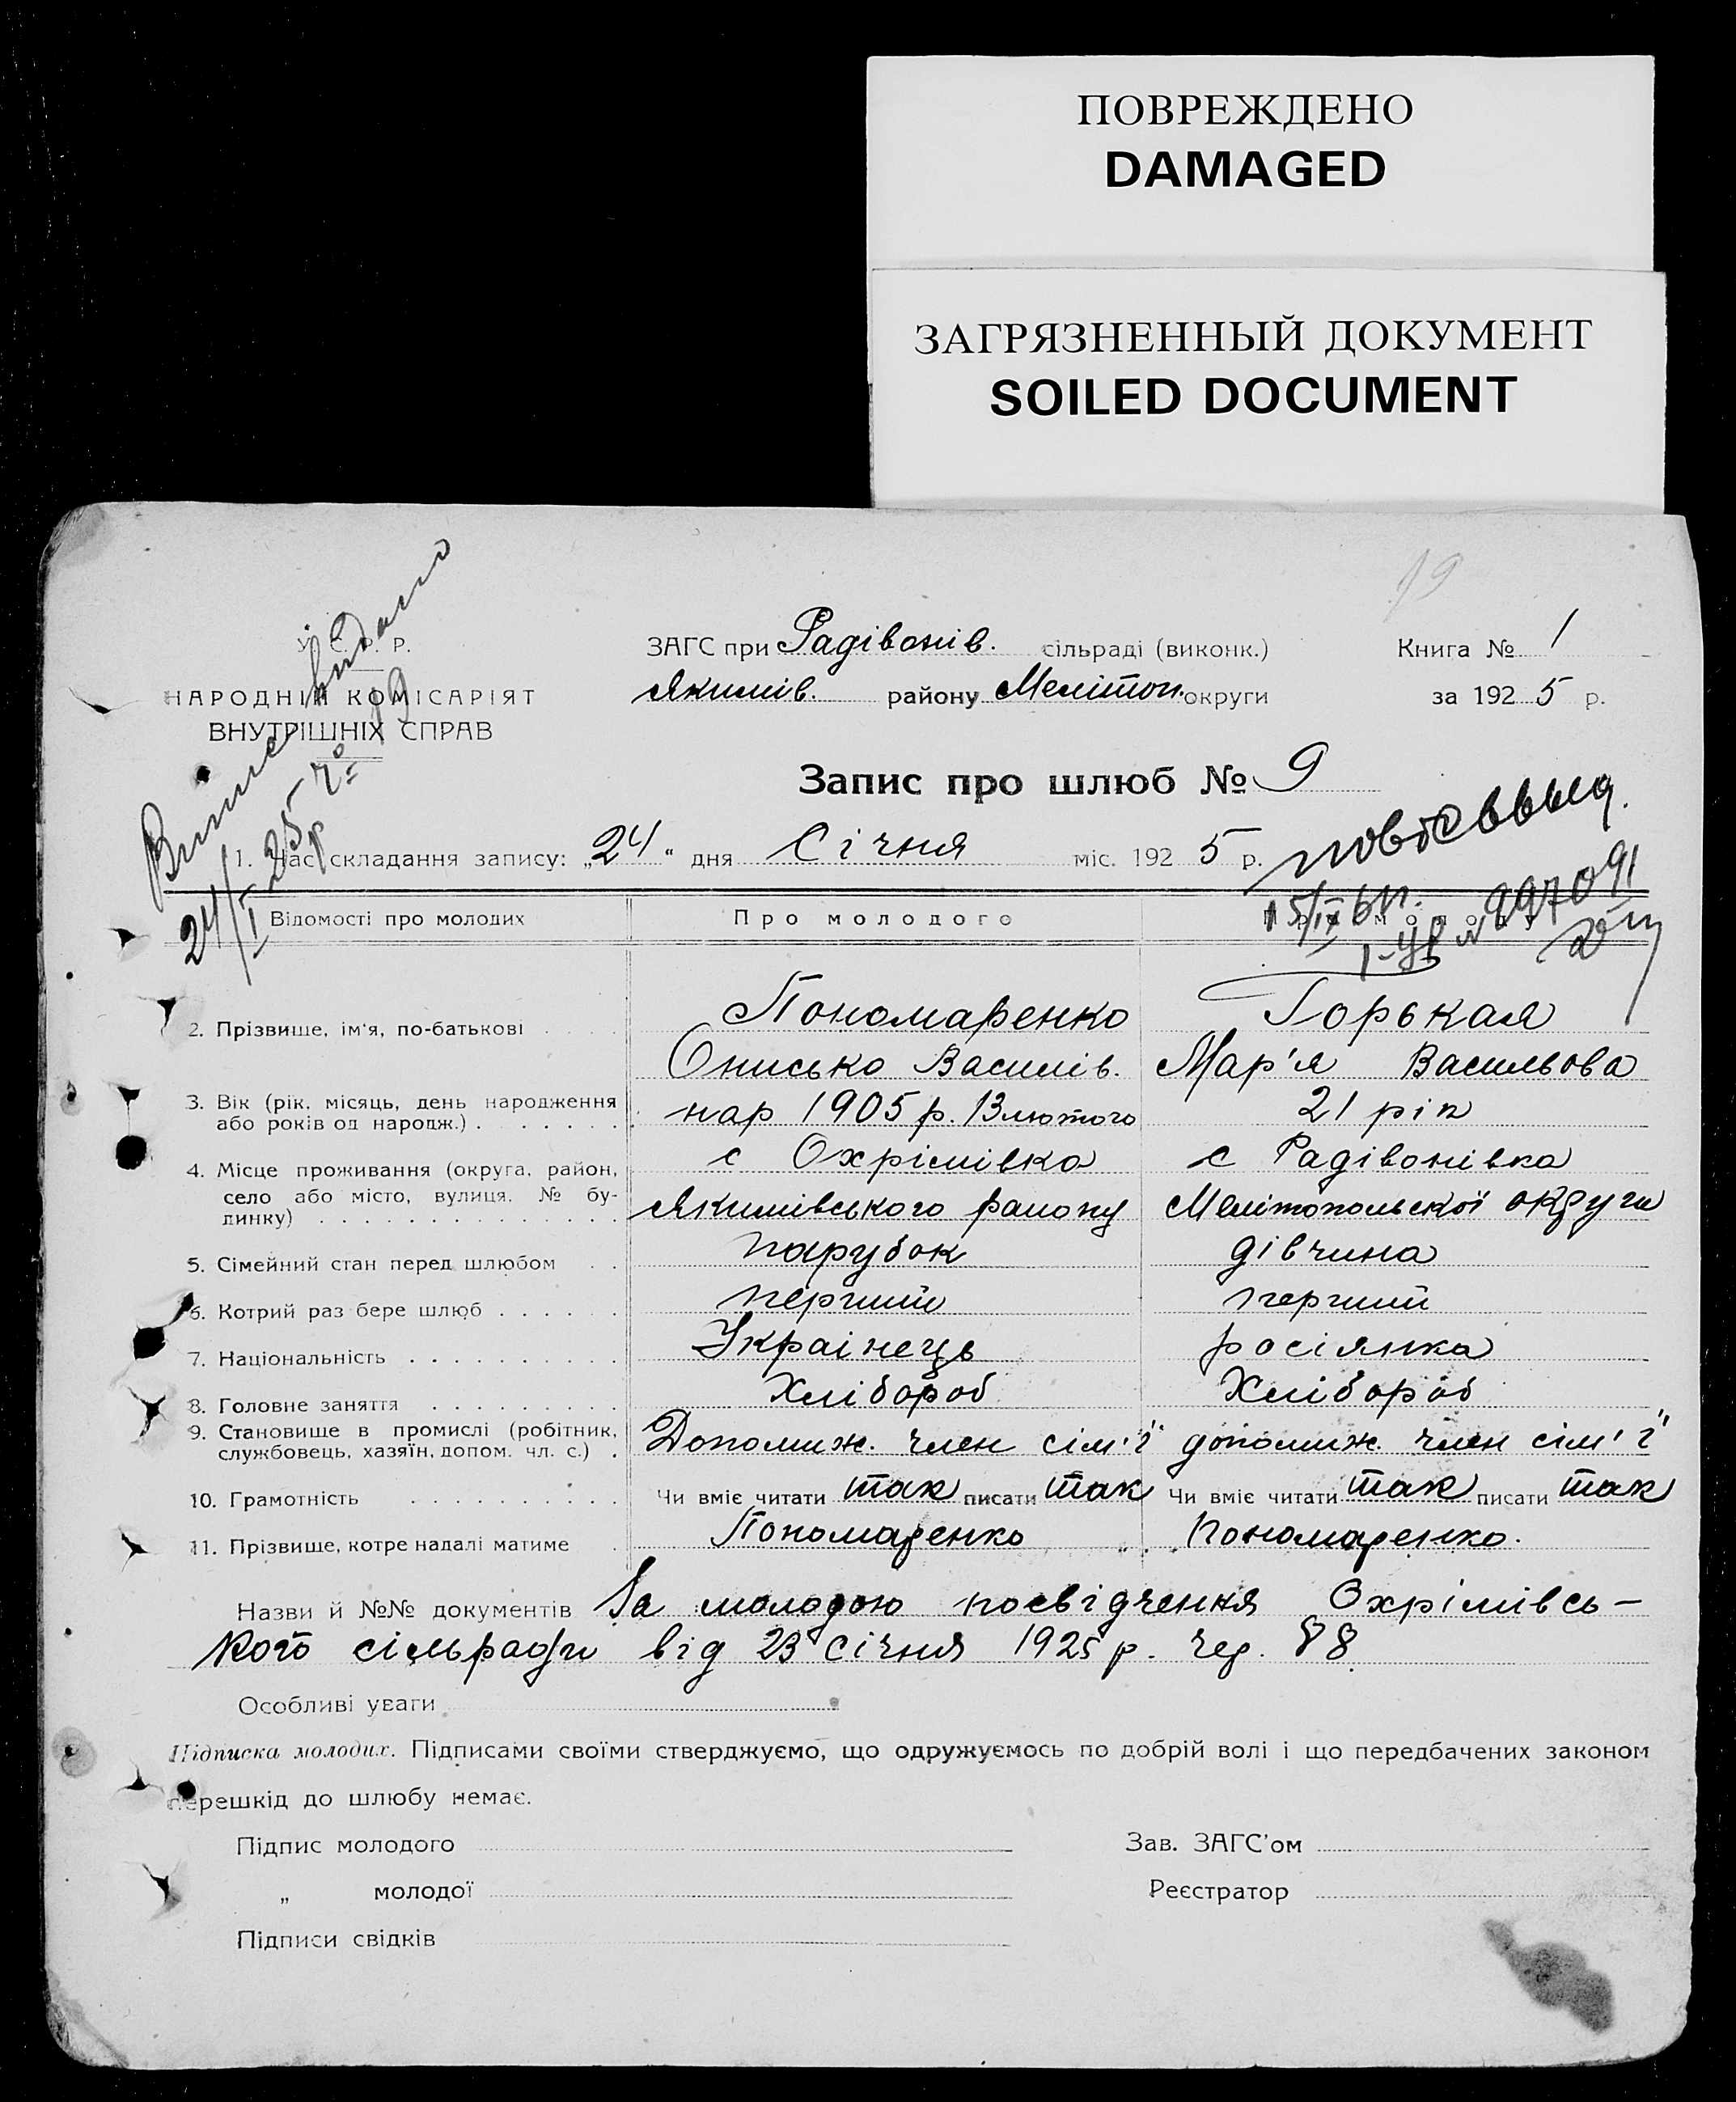 ПОВРЕЖДЕНО
DAMAGED
ЗАГРЯЗНЕННЫЙ ДОКУМЕНТ
SOILED DOCUMENT
19
У. С. Р. Р.
НАРОДНІЙ КОМІСАРІЯТ
ВНУТРІШНІХ СПРАВ
Виписъ видано
24/I 25 р № 19
ЗАГС при Радівонів. сільраді (виконк.)
Якимів. району Мелітоп. округи
Книга № 1
за 1925 р.
Запис про шлюб № 9
1. Час складання запису: „24“ дня Січня міс. 1925 р.
15/IX 61 г.
997091
Відомості про молодих
Про молодого
Про молоду
2. Прізвище, ім'я, по-батькові
Пономаренко
Горькая
Онисько Василів.
Мар'я Васильова
3. Вік (рік, місяць, день народження або років од народж.)
нар 1905 р. 13 лютого
21 рік
4. Місце проживання (округа, район, село або місто, вулиця, № будинку)
с Охрімівка
с Радівонівка
Якимівського району
Мелітопольскої округи
5. Сімейний стан перед шлюбом
парубок
дівчина
6. Котрий раз бере шлюб
перший
перший
7. Національність
Українець
росіянка
8. Головне заняття
Хлібороб
Хлібороб
9. Становище в промислі (робітник, службовець, хазяїн, допом. чл. с.)
Допомиж. член сім'ї
допомиж. член сім'ї
10. Грамотність
Чи вміє читати так писати так
Чи вміє читати так писати так
11. Прізвище, котре надалі матиме
Пономаренко
Пономаренко.
Назви й №№ документів За молодою посвідчення Охрімівсь-
кого сільради від 23 січня 1925 р. чер. 88
Особливі уваги
Підписка молодих. Підписами своїми стверджуємо, що одружуємось по добрій волі і що передбачених законом
перешкід до шлюбу немає.
Підпис молодого
Зав. ЗАГС'ом
„ молодої
Реєстратор
Підписи свідків